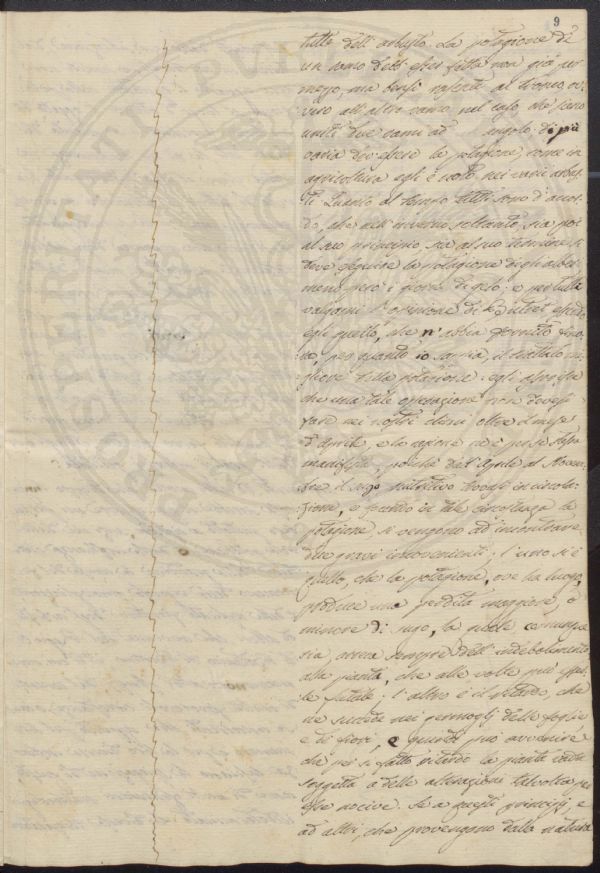 9
tutte dell'arbusto. La potagione di
un ramo debb'esser fatta non già per
mezzo, ma bensì rasente al tronco, ov
vero all'altro ramo, nel caso che siano
uniti due rami ad angolo. Di più
varia dev'essere la potagione, come in
agricoltura egli è noto, nei varii arbus
ti. Quanto al tempo tutti sono d'accor
do, che nell'inverno soltanto, sia poi
al suo principio sia al suo termine si
deve eseguire la potagione degli alberi
meno però i giorni di gelo: e per tutti
valgami l'opinione di essendo
egli quello, che n'abbia fornito fino
ra, per quanto io sappia, il trattato mi
gliore sulla potagione. egli
che una tale operazione non dovessi
fare nei nostri climi oltre il mese
d'Aprile, e la ragione ne è per se stessa
manifesta, poiché dall'Aprile al Novem
bre il sugo nutritivo trovasi in circola
zione, e facendo in tale circostanza la
potagione, si vengono ad incontrare
due gravi inconvenienti; l'uno si è
quello, che la potagione, ove ha luogo,
produce una perdita maggiore, o
minore di sugo, la quale comunque
sia, arreca sempre dell'indebolimento
alla pianta, che alle volte può esser
le fatale: l'altro è il ritardo, che
ne succede nei germoglj delle foglie
e de' fiori, e quindi può avvenire
che per sì fatto ritardo la pianta vada
soggetta a delle alterazioni talvolta per
esse nocive. Se a questi principj, e
ad altri, che provengono dalla natura
OSPERITATI PVBL